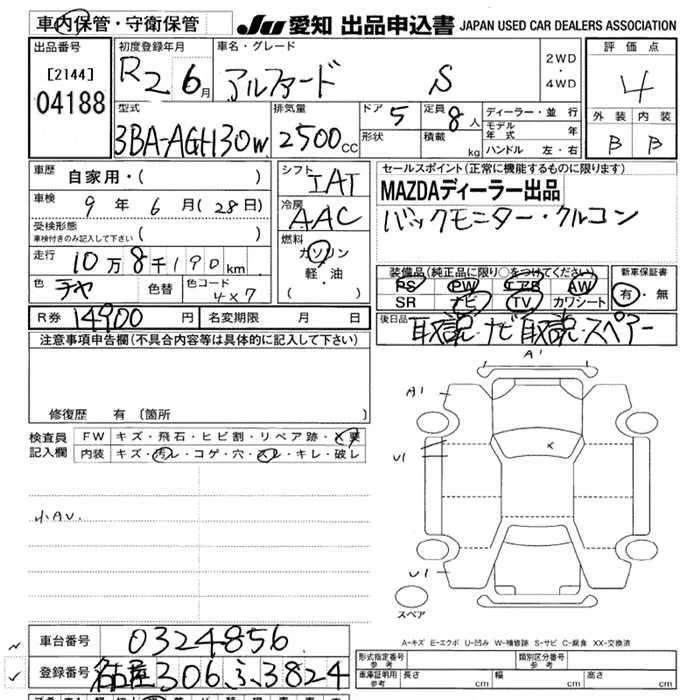 車内保管・守衛保管 JU 愛知 出品申込書 JAPAN USED CAR DEALERS ASSOCIATION
出品番号 初度登録年月 車名・グレード 2WD・4WD 評価点
[2144] R2 6月 アルファード S 4
04188 型式 排気量 ドア 5 定員 8人 ディーラー・並行 外装 内装
3BA-AGH30W 2500cc 形状 積載 kg モデル年式 年 B B
ハンドル 左・右
車歴 自家用・( ) シフト IAT セールスポイント(正常に機能するものに限ります)
車検 9年 6月(28日) 冷房 AAC MAZDAディーラー出品
受検形態 車検付きのみ記入して下さい ( ) 燃料 ガソリン バックモニター・クルコン
走行 10万8千190km 軽・油
色 チャ 色替 色コード 4X7 ( ・ ) 装備品(純正品に限り○をつけてください) 新車保証書
PS PW エアB AW 有・無
SR ナビ TV カワシート
R券 14900円 名変期限 月 日 後日品 取説・ナビ取説・スペアー
注意事項申告欄(不具合内容等は具体的に記入して下さい)
A1
A1
修復歴 有(箇所
検査員記入欄 FW キズ・飛石・ヒビ割・リペア跡・X要
内装 キズ・汚レ・コゲ・穴・スレ・キレ・破レ
U1
X
小AU.
U1
スペア
A-キズ E-エクボ U-凹み W-補修跡 S-サビ C-腐食 XX-交換済
車台番号 0324856 形式指定番号 参考 類別区分番号 参考
登録番号 名古屋306ふ3824 車庫証明用 参考 長さ cm 幅 cm 高さ cm